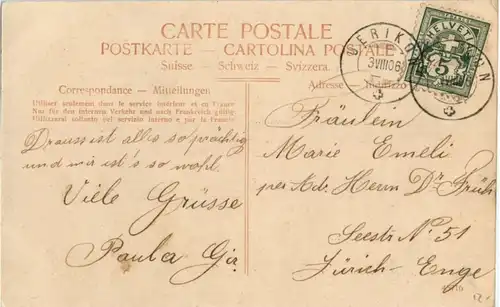 CARTE POSTALE
POSTKARTE — CARTOLINA POSTALE
Suisse — Schweiz — Svizzera.
Correspondance — Mitteilungen
Adresse — Indirizzo
Utiliser seulement dans le service intérieur et en France
Nur für den internen Verkehr und nach Frankreich gültig
Utilizzare soltanto pel servizio interno e per la Francia
HELVETIA
5
3 VIII 06
Drauss ist alles so prächtig
und mir ist's so wohl.
Viele Grüsse
Paula
Fräulein
Marie Emeli
per Ad. Herrn Dr. Früh
Seestr No. 51
Zürich-Enge